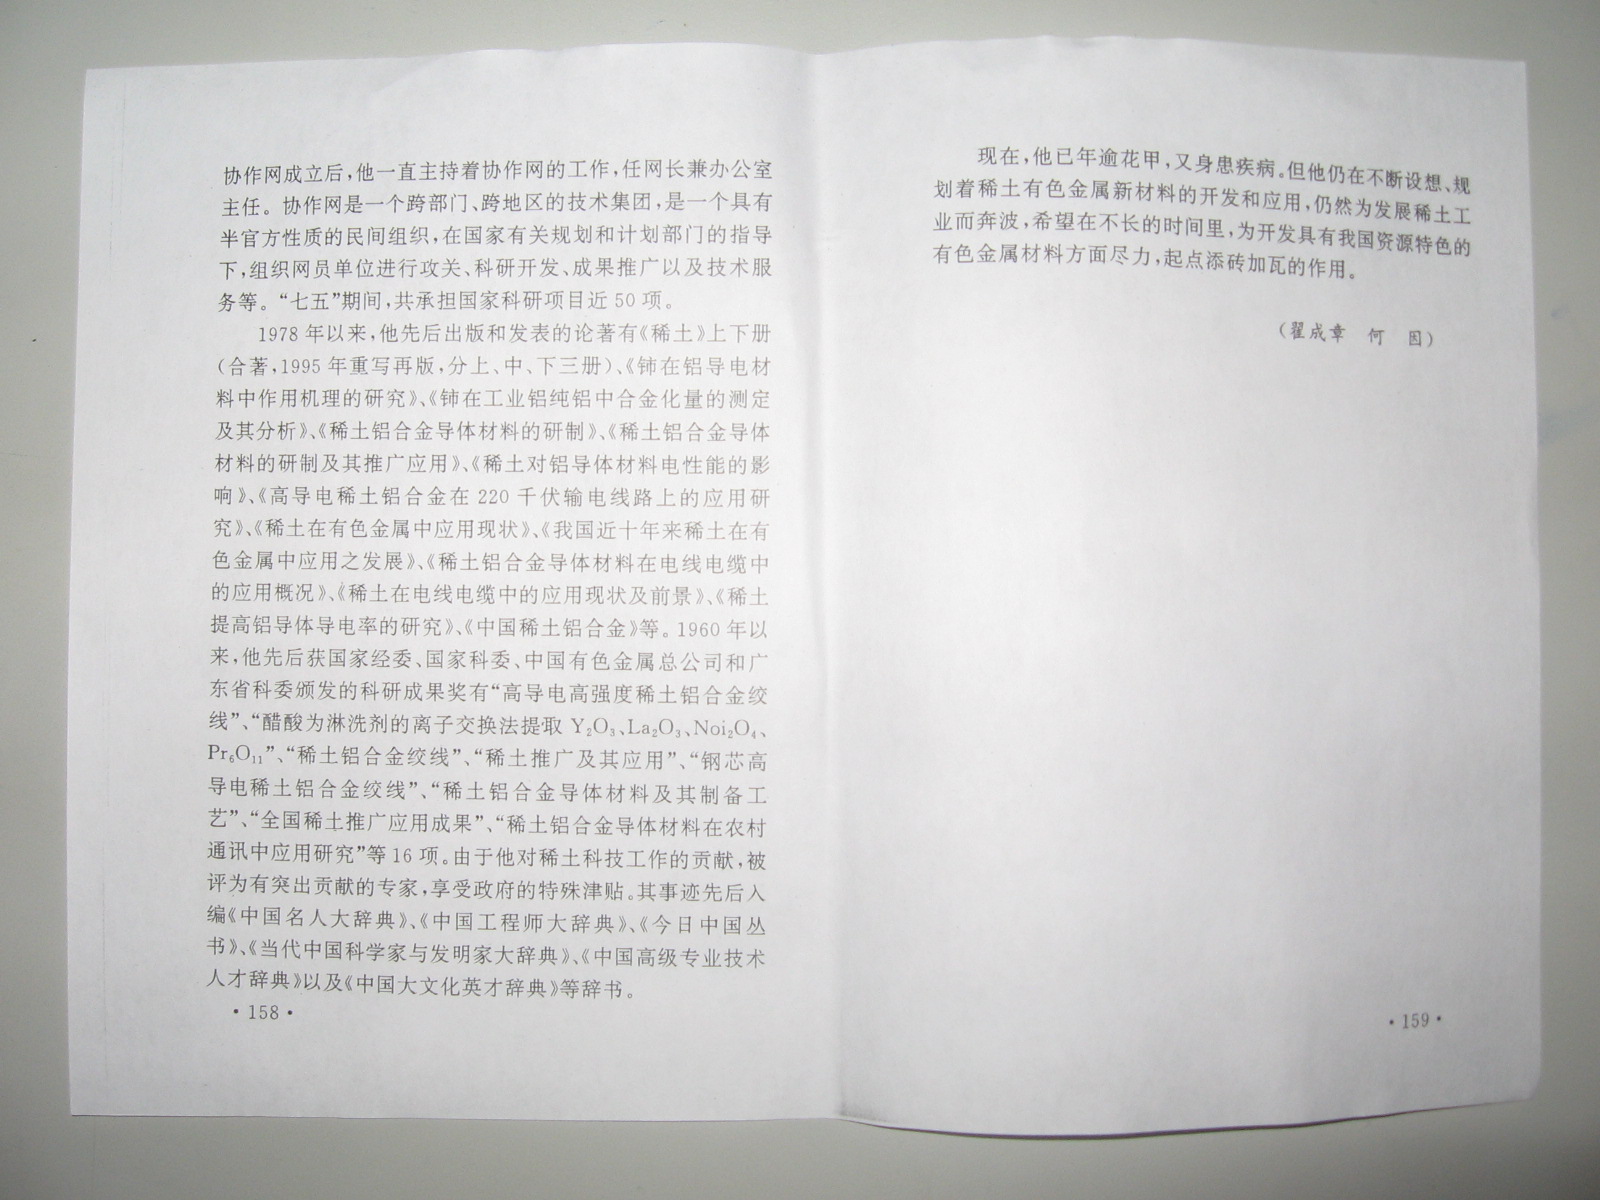 协作网成立后,他一直主持着协作网的工作,任网长兼办公室
主任。协作网是一个跨部门、跨地区的技术集团,是一个具有
半官方性质的民间组织,在国家有关规划和计划部门的指导
下,组织网员单位进行攻关、科研开发、成果推广以及技术服
务等。“七五”期间,共承担国家科研项目近50项。
1978年以来,他先后出版和发表的论著有《稀土》上下册
(合著,1995年重写再版,分上、中、下三册)、《铈在铝导电材
料中作用机理的研究》、《铈在工业铝纯铝中合金化量的测定
及其分析》、《稀土铝合金导体材料的研制》、《稀土铝合金导体
材料的研制及其推广应用》、《稀土对铝导体材料电性能的影
响》、《高导电稀土铝合金在220千伏输电线路上的应用研
究》、《稀土在有色金属中应用现状》、《我国近十年来稀土在有
色金属中应用之发展》、《稀土铝合金导体材料在电线电缆中
的应用概况》、《稀土在电线电缆中的应用现状及前景》、《稀土
提高铝导体导电率的研究》、《中国稀土铝合金》等。1960年以
来,他先后获国家经委、国家科委、中国有色金属总公司和广
东省科委颁发的科研成果奖有“高导电高强度稀土铝合金绞
线”、“醋酸为淋洗剂的离子交换法提取Y₂O₃、La₂O₃、Noi₂O₄、
Pr₆O₁₁”、“稀土铝合金绞线”、“稀土推广及其应用”、“钢芯高
导电稀土铝合金绞线”、“稀土铝合金导体材料及其制备工
艺”、“全国稀土推广应用成果”、“稀土铝合金导体材料在农村
通讯中应用研究”等16项。由于他对稀土科技工作的贡献,被
评为有突出贡献的专家,享受政府的特殊津贴。其事迹先后入
编《中国名人大辞典》、《中国工程师大辞典》、《今日中国丛
书》、《当代中国科学家与发明家大辞典》、《中国高级专业技术
人才辞典》以及《中国大文化英才辞典》等辞书。
·158·
现在,他已年逾花甲,又身患疾病。但他仍在不断设想、规
划着稀土有色金属新材料的开发和应用,仍然为发展稀土工
业而奔波,希望在不长的时间里,为开发具有我国资源特色的
有色金属材料方面尽力,起点添砖加瓦的作用。
(翟成章 何 因)
·159·